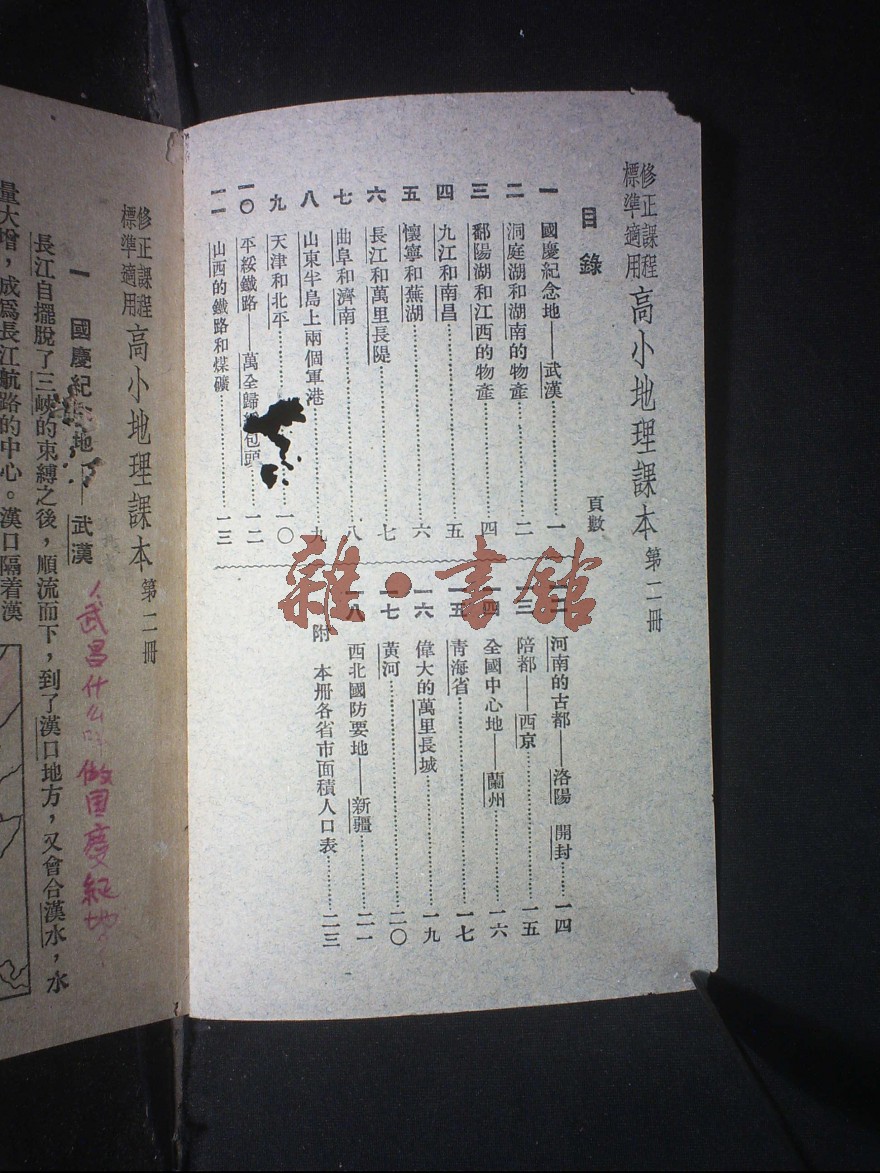 修正課程標準適用 高小地理課本 第二冊
目錄
頁數
一 國慶紀念地——武漢 一
二 洞庭湖和湖南的物產 二
三 鄱陽湖和江西的物產 四
四 九江和南昌 五
五 懷寧和蕪湖 六
六 長江和萬里長隄 七
七 曲阜和濟南 八
八 山東半島上兩個軍港 九
九 天津和北平 一〇
一〇 平綏鐵路——萬全歸 包頭 一二
一一 山西的鐵路和煤礦 一三
一二 河南的古都——洛陽 開封 一四
一三 陪都——西京 一五
一四 全國中心地——蘭州 一六
一五 青海省 一七
一六 偉大的萬里長城 一九
一七 黃河 二〇
一八 西北國防要地——新疆 二一
附 本冊各省市面積人口表 二三
雜·書館
修正課程標準適用 高小地理課本 第二冊
一 國慶紀念地——武漢
武昌什么 做国慶紀地
長江自擺脫了三峽的束縛之後，順流而下，到了漢口地方，又會合漢水，水
量大增，成爲長江航路的中心。漢口隔着漢